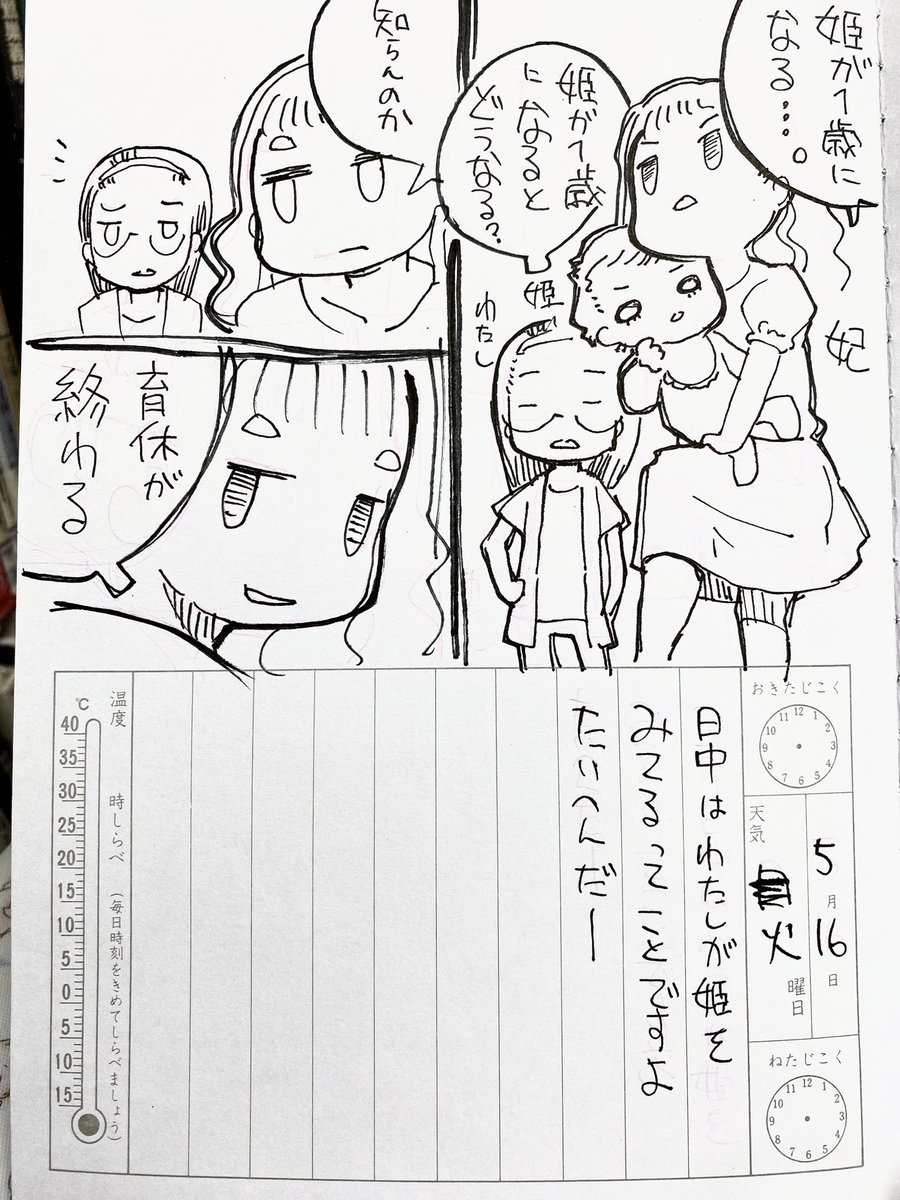 姫が1歳に
なる…。
妃
姫が1歳
になると
どうなる?
姫
わたし
知らんのか
育休が
終わる
おきたじこく
12
1
2
3
4
5
6
7
8
9
10
11
5月16日
天気
火曜日
ねたじこく
12
1
2
3
4
5
6
7
8
9
10
11
日中はわたしが姫を
みてるってことですよ
たいへんだー
温度
時しらべ (毎日時刻をきめてしらべましょう)
℃
40
35
30
25
20
15
10
5
0
5
10
15